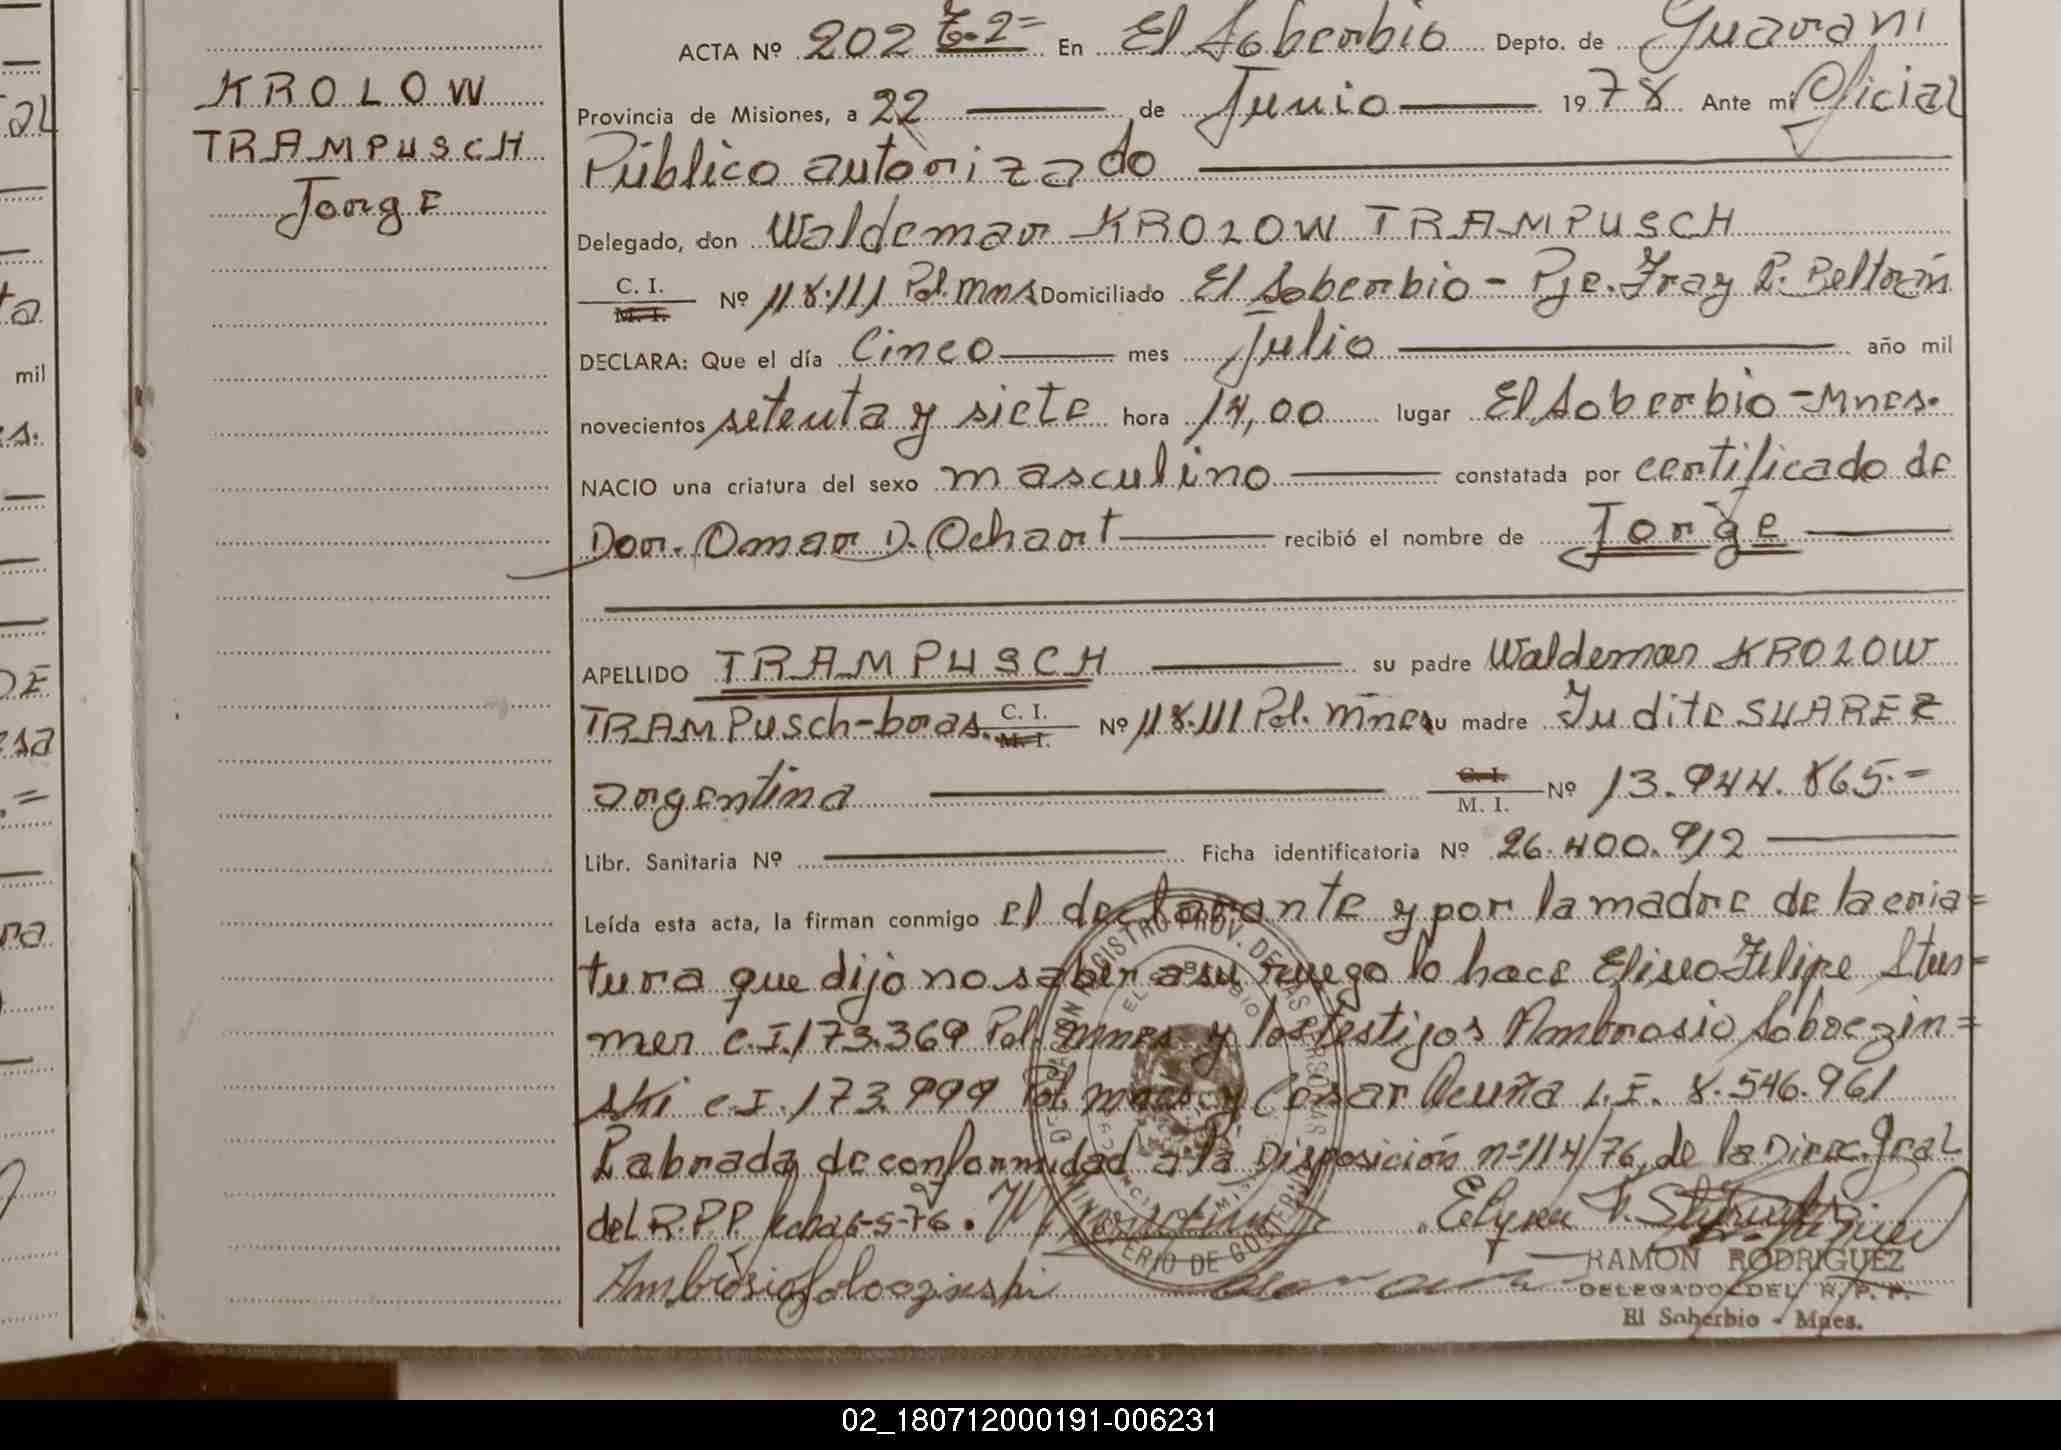 KROLOW
TRAMPUSCH
Jorge
ACTA Nº 202 To.2= En El Soberbio Depto. de Guarani
Provincia de Misiones, a 22 de Junio 1978 Ante mi Oficial
Público autorizado
Delegado, don Waldemar KROLOW TRAMPUSCH
C. I. M. I. Nº 118.111 Pol. Mns Domiciliado El Soberbio - Pje. Fray L. Beltrán
DECLARA: Que el día Cinco mes Julio año mil
novecientos setenta y siete hora 14,00 lugar El Soberbio - Mnes.
NACIO una criatura del sexo masculino constatada por certificado de
Dor. Omar D. Ochart recibió el nombre de Jorge
APELLIDO TRAMPUSCH su padre Waldemar KROLOW
TRAMPusch-bras. C. I. M. I. Nº 118.111 Pol. Mnes su madre Judite SUAREZ
argentina C. I. M. I. Nº 13.944.865.-
Libr. Sanitaria Nº Ficha identificatoria Nº 26.400.912
Leída esta acta, la firman conmigo el declarante y por la madre de la cria=
tura que dijo no saber a su ruego lo hace Eliseo Felipe Stur=
mer c.I. 173.369 Pol. mnes y los testigos Ambrosio Soboczin=
ski c.I. 173.999 Pol. mnes y Cesar Acuña L.E. 8.546.961
Labrada de conformidad a la Disposición nº 114/76, de la Direc. Gral
del R.P.P. fecha 6-5-76.
RAMON RODRIGUEZ
DELEGADO DEL R. P. P.
El Soberbio - Mnes.
02_180712000191-006231